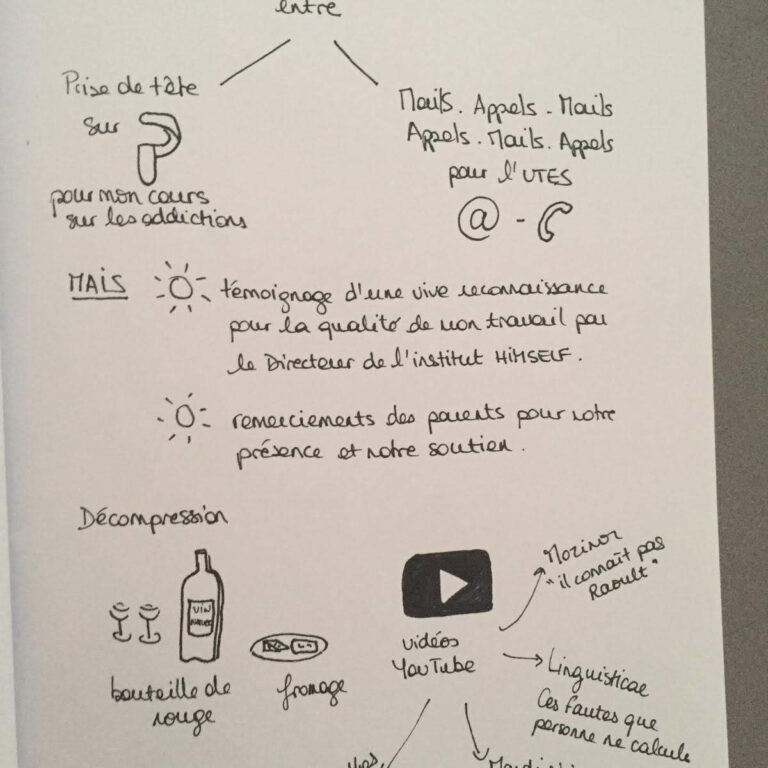 entre
Prise de tête
sur
pour mon cours
sur les addictions
Mails. Appels - Mails
Appels. Mails. Appels
pour l'UTES
@ -
MAIS
témoignage d'une vive reconnaissance
pour la qualité de mon travail par
le Directeur de l'institut HIMSELF.
remerciements des parents pour notre
présence et notre soutien.
Décompression
VIN
bouteille de
rouge
fromage
vidéos
YouTube
"il connaît pas
Raoult"
Linguisticae
Ces fautes que
personne ne calcule